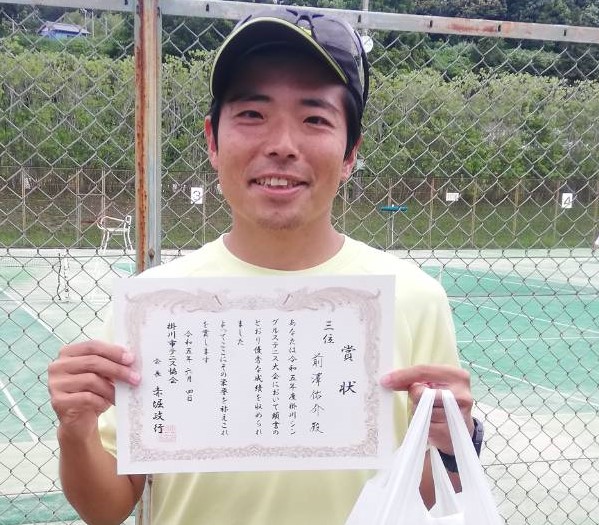 賞状
三位 前澤佑介殿
あなたは令和五年度掛川シン
グルステニス大会において頭書の
とおり優秀な成績を収められ
ました
よってここにその栄誉を称えこれ
を賞します
令和五年六月四日
掛川市テニス協会
会長 赤堀政行
3
4